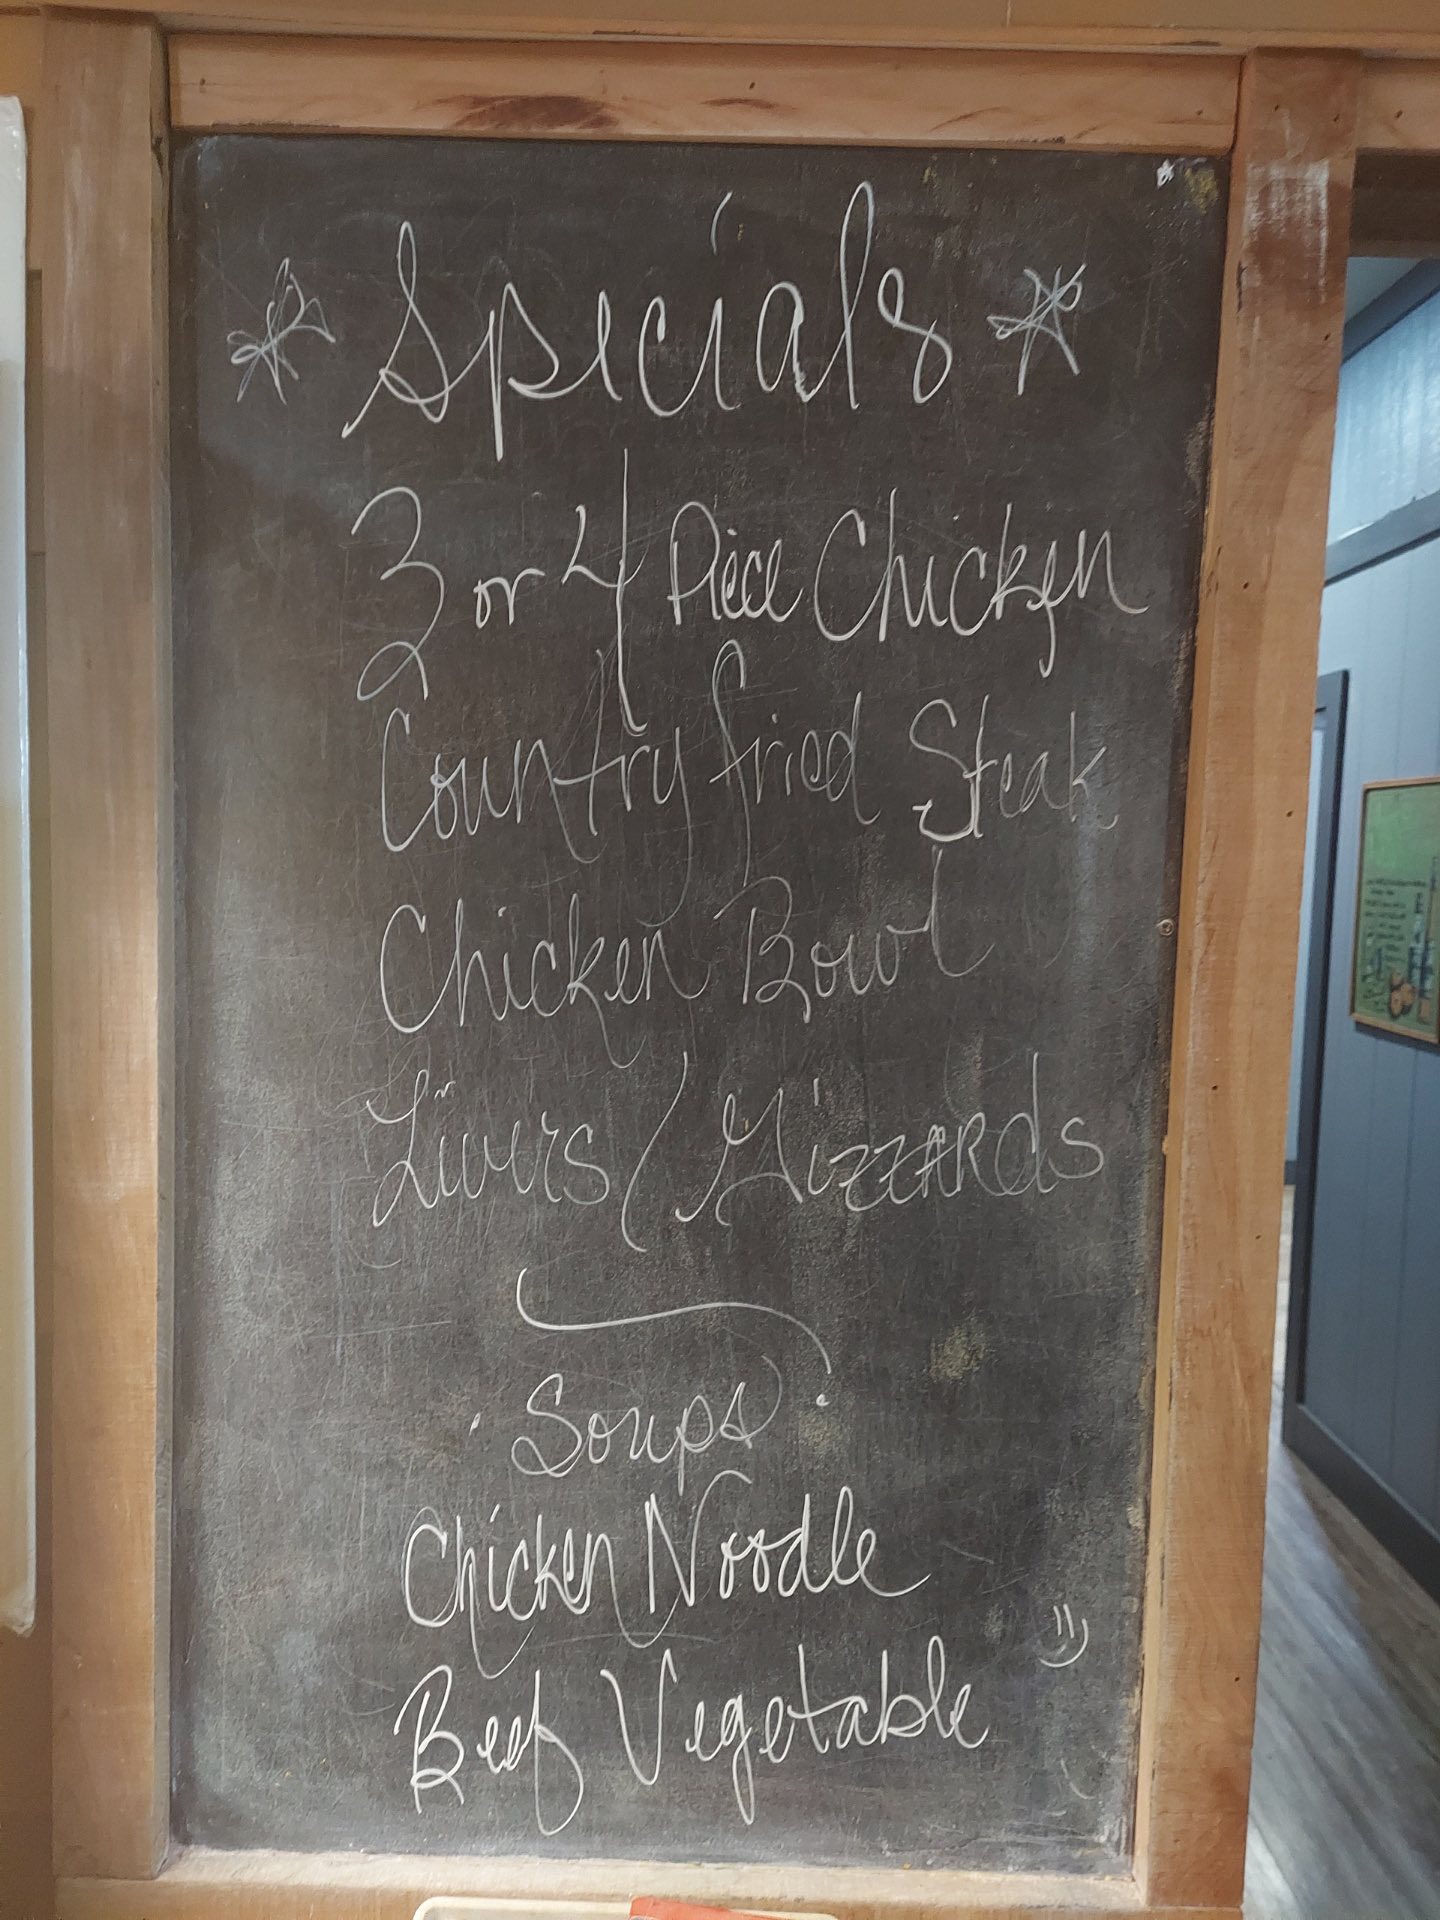 * Specials *
3 or 4 Piece Chicken
Country fried Steak
Chicken Bowl
Livers / Gizzards
Soups
Chicken Noodle
Beef Vegetable